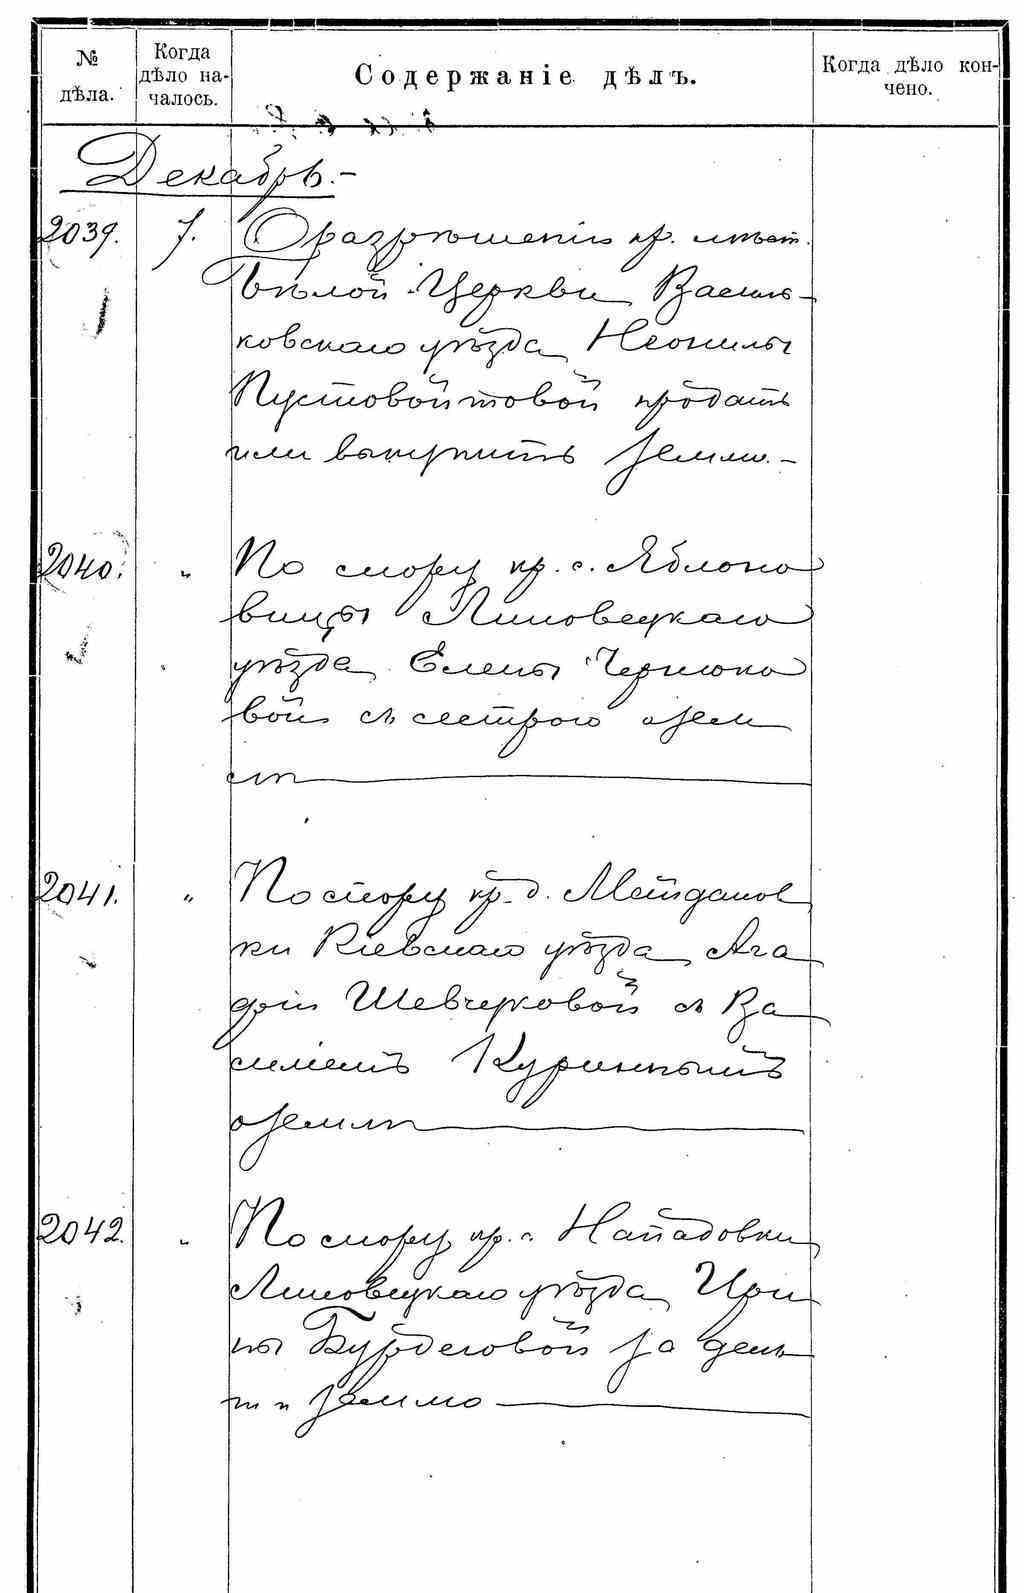 № дѣла.
Когда дѣло на-чалось.
Содержаніе дѣлъ.
Когда дѣло кон-чено.
Декабрь.-
2039. 7. О разрѣшеніи кр. мѣст.
Бѣлой-Церкви Василь-
ковскаго уѣзда Неонилы
Пустовойтовой продать
или выкупить землю.-
2040. " По спору кр. с. Яблоно
вицы Липовецкаго
уѣзда Елены
вой съ сестрою о зем
лѣ
2041. " По спору кр. д. Мейданов
ки Кіевскаго уѣзда Ага
фіи Шевчуковой съ Ва
силіемъ Куриннымъ
о землѣ
2042. " По спору кр. с. Нападовки
Липовецкаго уѣзда Ири
ны за день
ги и землю